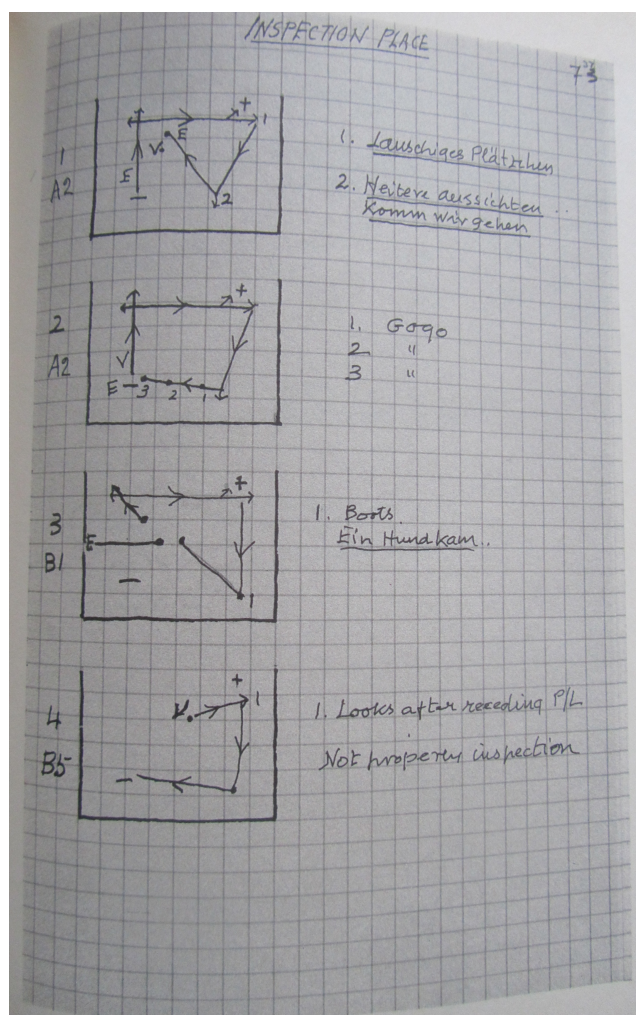 INSPECTION PLACE
73
1
A2
E
V.
E
+
1
2
1. Lauschiges Plätzchen
2. Heitere aussichten..
Komm wir gehen
2
A2
V
E
3
2
1
+
1. Gogo
2 "
3 "
3
B1
E
+
1
1. Boots.
Ein Hund kam..
4
B5
V.
+
1
1. Looks after receding P/L
Not properly inspection